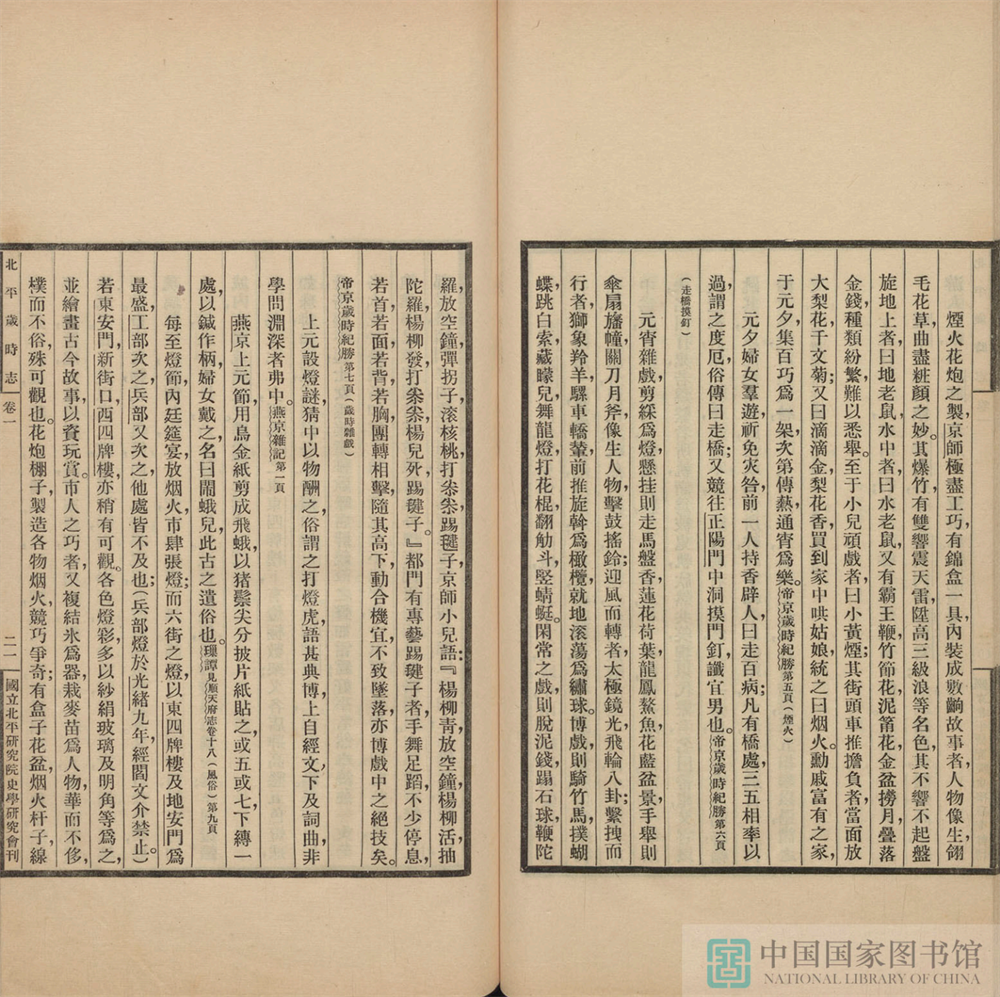 煙火花炮之製，京師極盡工巧，有錦盒一具，內裝成數齣故事者，人物像生，翎
毛花草，曲盡粧顏之妙。其爆竹有雙響震天雷，陞高三級浪等名色，其不響不起盤
旋地上者曰地老鼠，水中者曰水老鼠，又有霸王鞭，竹節花，泥筩花，金盆撈月，疊落
金錢，種類紛繁，難以悉舉。至于小兒頑戲者，曰小黃煙；其街頭車推擔負者，當面放
大梨花，千丈菊；又曰滴滴金，梨花香，買到家中哄姑娘，統之曰烟火。勳戚富有之家，
于元夕集百巧爲一架，次第傳爇，通宵爲樂。帝京歲時紀勝第五頁（煙火）
元夕婦女羣遊，祈免灾咎，前一人持香辟人，曰走百病；凡有橋處，三五相率以
過，謂之度厄，俗傳曰走橋；又競往正陽門中洞摸門釘，讖宜男也。帝京歲時紀勝第六頁
（走橋摸釘）
元宵雜戲，剪綵爲燈，懸挂則走馬盤香，蓮花荷葉，龍鳳鰲魚，花藍盆景，手舉則
傘扇旛幢，關刀月斧，像生人物，擊鼓搖鈴；迎風而轉者，太極鏡光，飛輪八卦；繫拽而
行者，獅象羚羊，騾車轎輦，前推旋斡爲橄欖，就地滾蕩爲繡球。博戲則騎竹馬，撲蝴
蝶，跳白索，藏矇兒，舞龍燈，打花棍，翻觔斗，竪蜻蜓。閑常之戲，則脫泥錢，蹋石球，鞭陀
羅，放空鐘，彈拐子，滾核桃，打尜尜，踢毽子。京師小兒語：『楊柳靑，放空鐘，楊柳活，抽
陀羅，楊柳發，打尜尜，楊兒死，踢毽子。』都門有專藝踢毽子者，手舞足蹈，不少停息，
若首若面，若背若胸，團轉相擊，隨其高下，動合機宜，不致墜落，亦博戲中之絕技矣。
帝京歲時紀勝第七頁（歲時雜戲）
上元設燈謎，猜中以物酬之，俗謂之打燈虎，語甚典博，上自經文，下及詞曲，非
學問淵深者弗中。燕京雜記第一頁
燕京上元節，用烏金紙剪成飛蛾，以猪鬃尖分披片紙貼之，或五或七，下縛一
處，以鍼作柄，婦女戴之，名曰鬧蛾兒，此古之遺俗也。璅譚見順天府志卷十八（風俗）第九頁
每至燈節，內廷筵宴，放烟火，市肆張燈；而六街之燈，以東四牌樓及地安門爲
最盛，工部次之，兵部又次之，他處皆不及也；（兵部燈於光緒九年經閻文介禁止）
若東安門，新街口，西四牌樓，亦稍有可觀。各色燈彩，多以紗絹玻璃及明角等爲之，
並繪畫古今故事，以資玩賞。市人之巧者，又複結氷爲器，栽麥苗爲人物，華而不侈，
樸而不俗，殊可觀也。花炮棚子，製造各物烟火，競巧爭奇；有盒子花盆，烟火杆子，線
北平歲時志
卷一
二一
國立北平硏究院史學硏究會刊
中国国家图书馆
NATIONAL LIBRARY OF CHINA